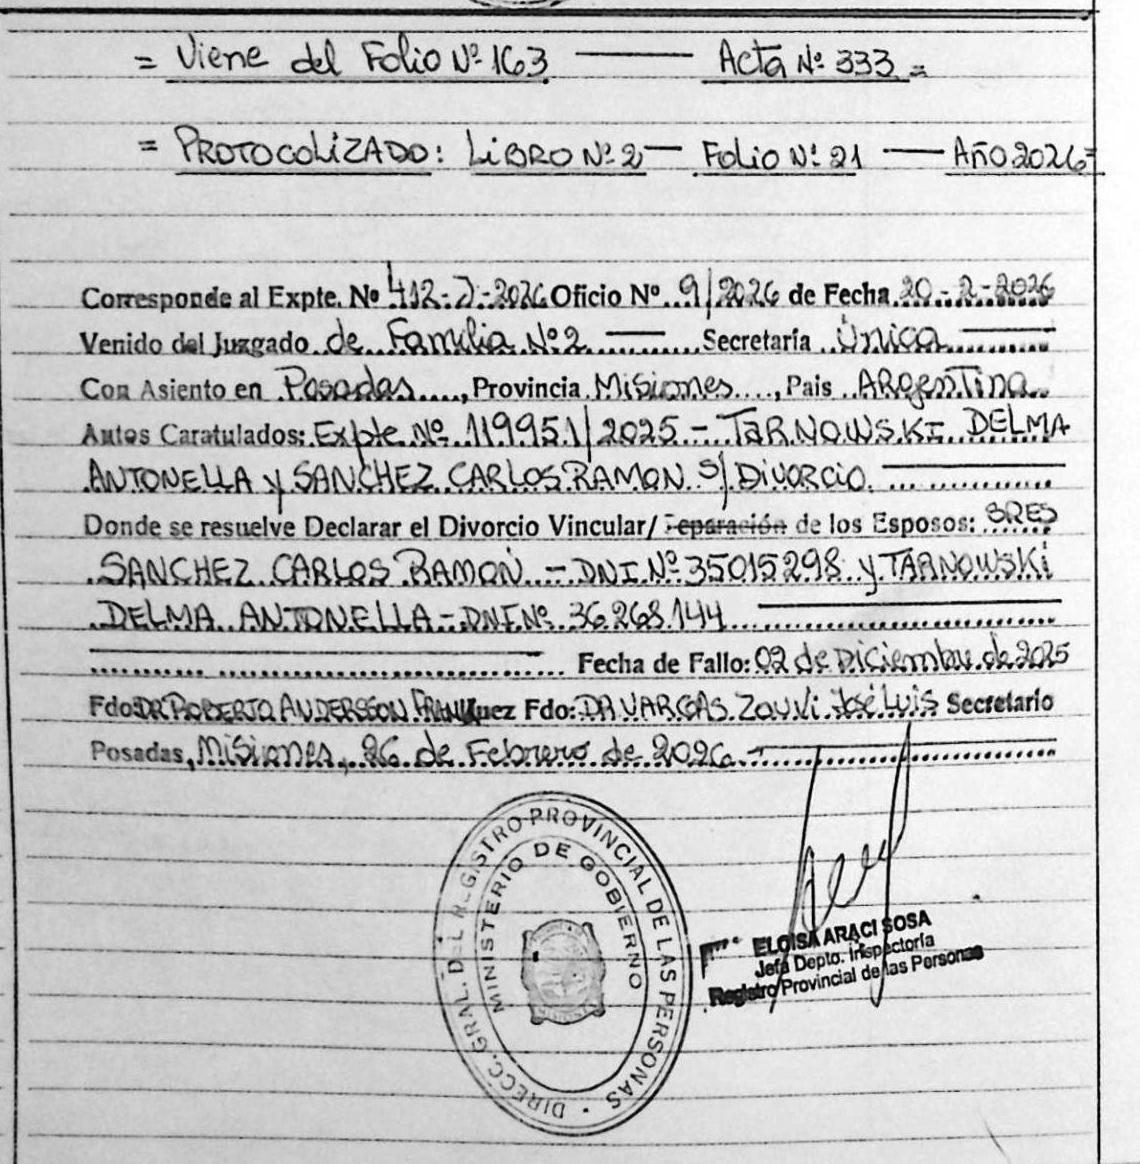 = Viene del Folio Nº 163 — Acta Nº 333 =
= PROTOCOLIZADO: LIBRO Nº 2 — Folio Nº 21 — AÑO 2026 =
Corresponde al Expte. Nº 412-J-2026 Oficio Nº 9/2026 de Fecha 20-2-2026
Venido del Juzgado de Familia Nº 2 — Secretaria Única —
Con Asiento en Posadas, Provincia Misiones, Pais ARgenTina
Autos Caratulados: Expte Nº 119951/2025 - TARNOWSKI DELMA
ANTONELLA y SANCHEZ CARLOS RAMON S/ DIVORCIO. —
Donde se resuelve Declarar el Divorcio Vincular/ Separación de los Esposos: SRES
SANCHEZ CARLOS RAMON - DNI Nº 35015298 y TARNOWSKI
DELMA ANTONELLA - DNI Nº 36.268.144 —
— Fecha de Fallo: 02 de Diciembre de 2025
Fdo: DR ROBERTO ANDERSSON FRANK Juez Fdo: DR VARGAS Zouvi José Luis Secretario
Posadas, Misiones, 26 de Febrero de 2026 —
DIRECC. GRAL. DEL REGISTRO PROVINCIAL DE LAS PERSONAS
MINISTERIO DE GOBIERNO
ELOISA ARACI SOSA
Jefa Depto. Inspectoría
Registro Provincial de las Personas